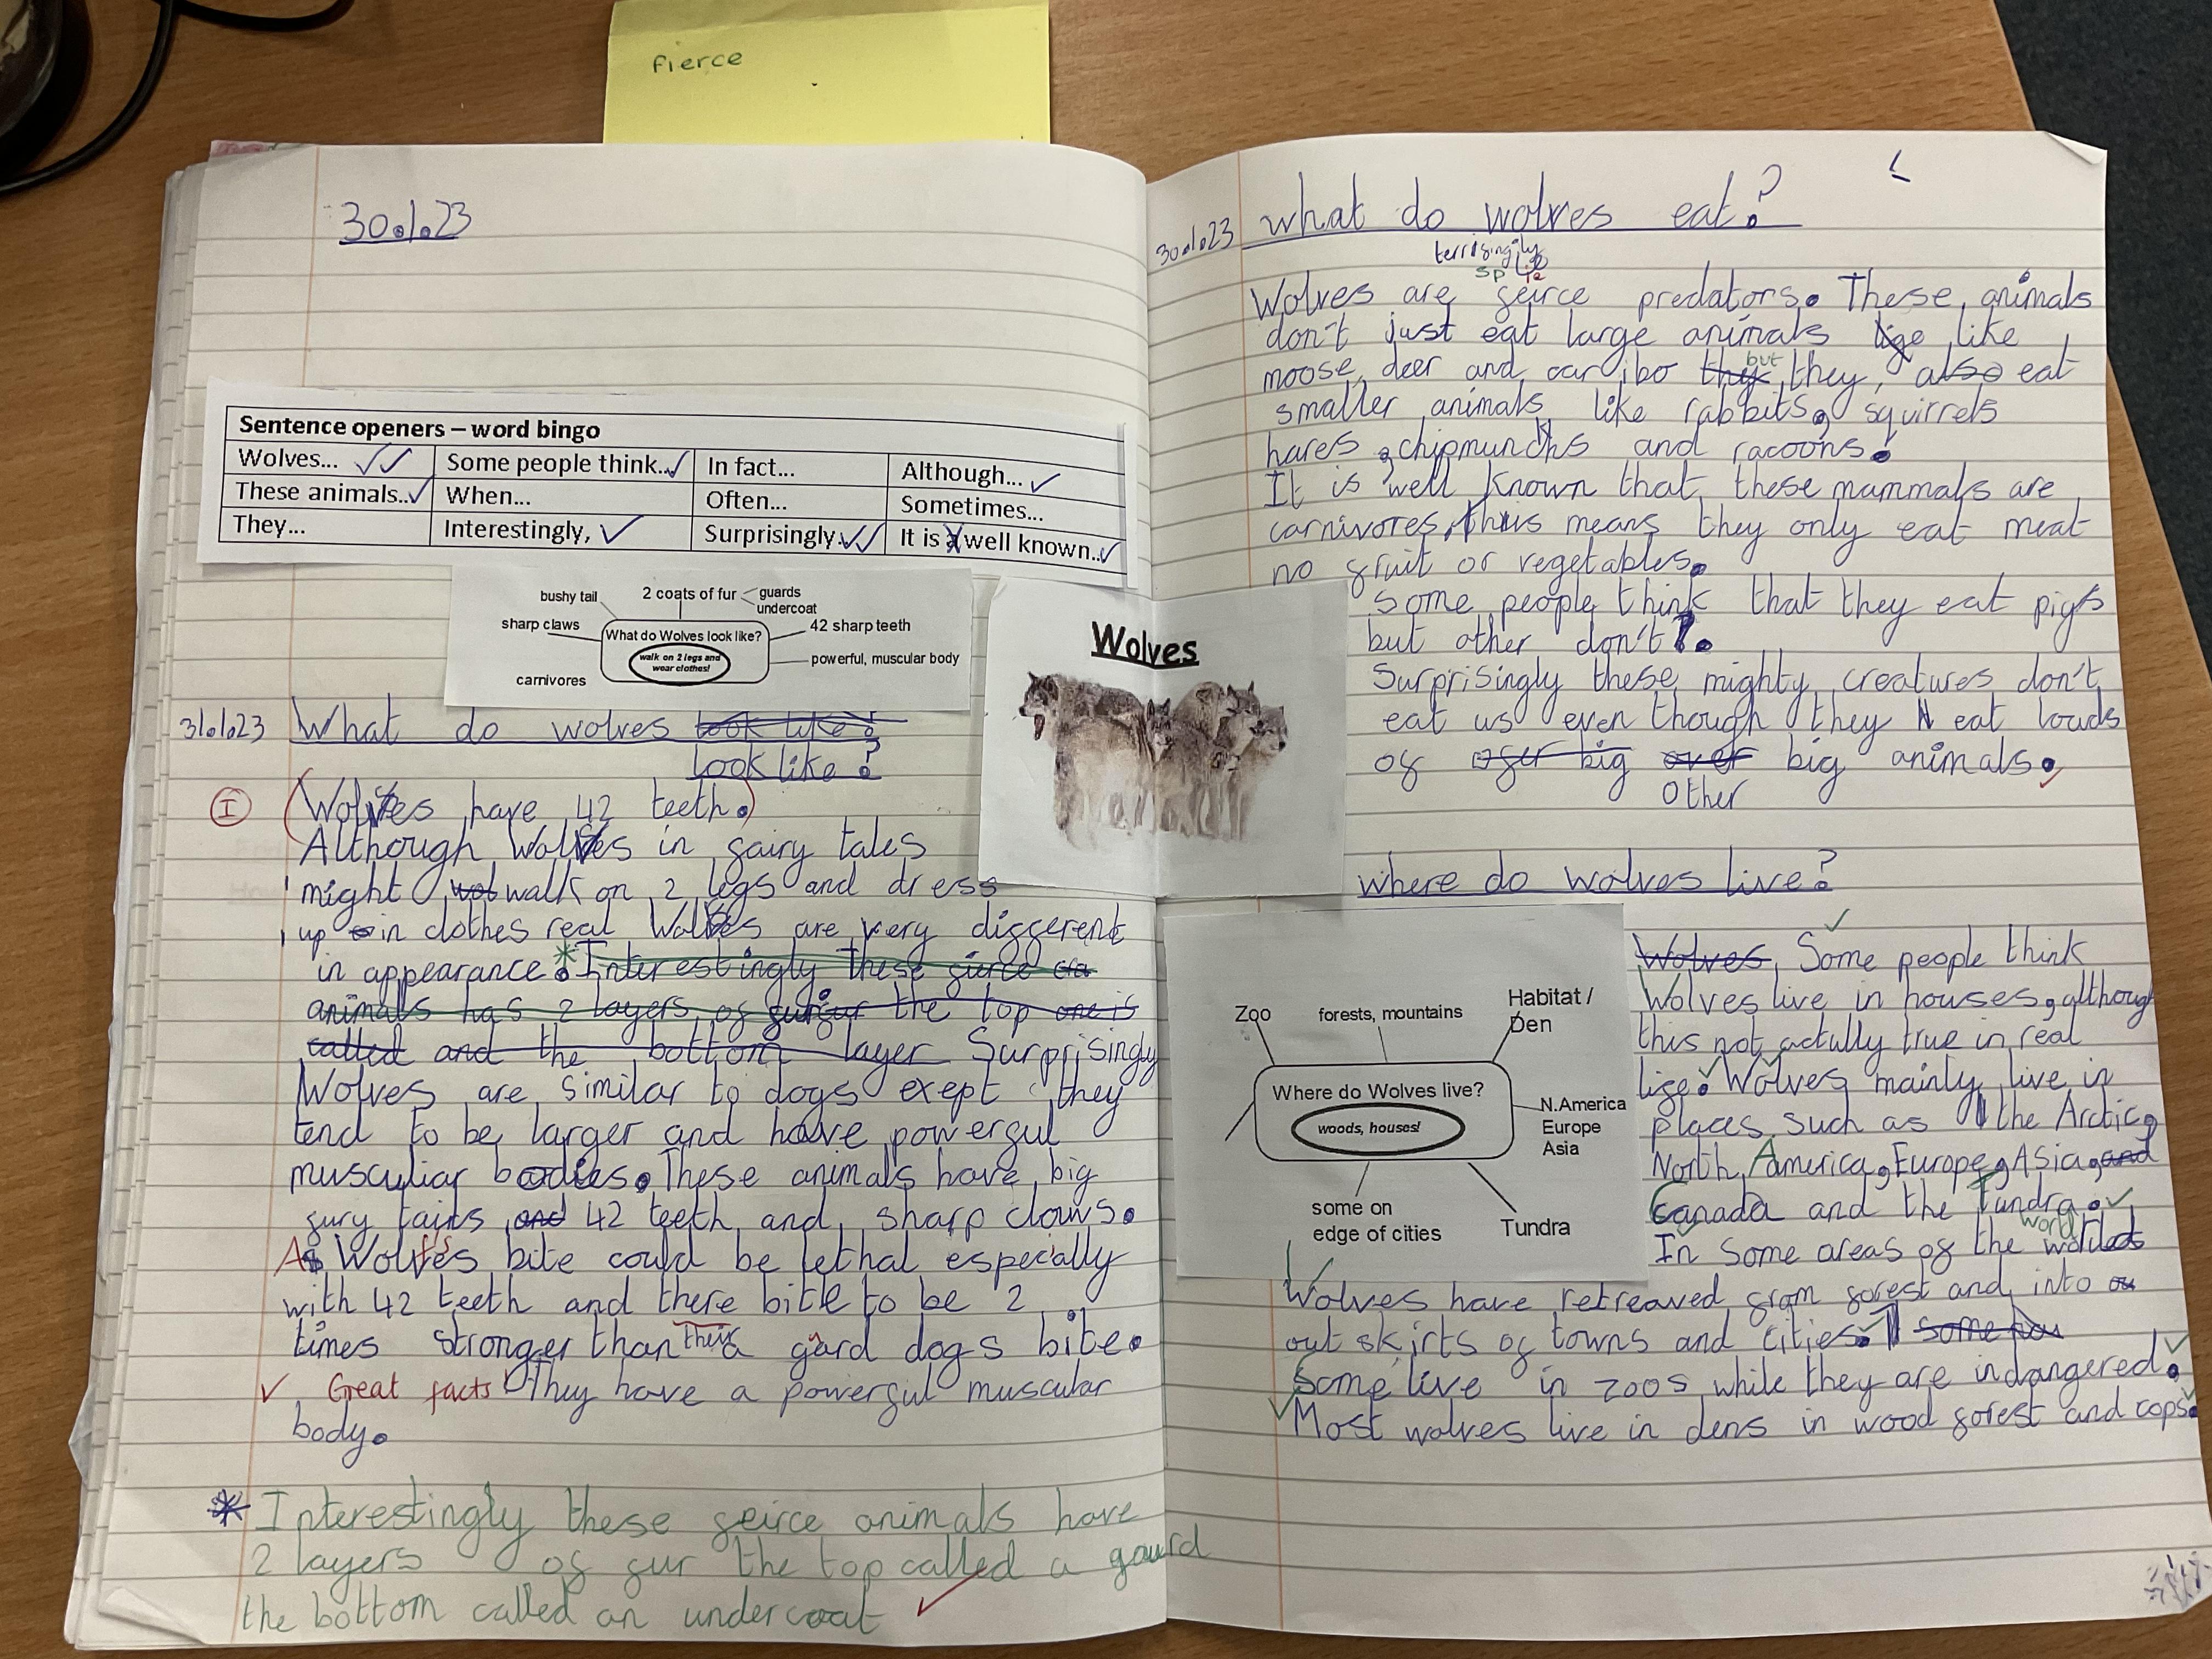 fierce
30.1.23
Sentence openers – word bingo
Wolves... Some people think... In fact... Although...
These animals... When... Often... Sometimes...
They... Interestingly, Surprisingly... It is a well known...
bushy tail
2 coats of fur
guards
undercoat
sharp claws
What do Wolves look like?
42 sharp teeth
walk on 2 legs and
wear clothes!
powerful, muscular body
carnivores
31.1.23 What do wolves look like?
look like?
I Wolves have 42 teeth.
Although Wolves in fairy tales
might walk on 2 legs and dress
up in clothes real Wolves are very different
in appearance. * Interestingly these fierce
animals has 2 layers of fur the top one is
called and the bottom layer Surprisingly
Wolves are similar to dogs exept they
tend to be larger and have powerful
musculiar bodies. These animals have big
fury tails and 42 teeth and sharp claws.
A Wolf's bite could be lethal especially
with 42 teeth and there bite to be 2
times stronger than their a gard dogs bite.
Great facts! They have a powerful muscular
body.
* Interestingly these feirce animals have
2 layers of fur the top called a gaurd
the bottom called an undercoat
Wolves
30.1.23 what do wolves eat?
sp
Wolves are feirce predators. These animals
don't just eat large animals like
moose, deer and caribo but they also eat
smaller animals like rabbits, squirrels
hares, chipmunks and racoons.
It is well known that these mammals are
carnivores, this means they only eat meat
no fruit or vegetables.
Some people think that they eat pigs
but other don't.
Surprisingly these mighty creatures don't
eat us even though they eat louds
of big big animals.
other
where do wolves live?
Zoo
forests, mountains
Habitat /
Den
Where do Wolves live?
woods, houses!
N.America
Europe
Asia
some on
edge of cities
Tundra
Wolves Some people think
Wolves live in houses, although
this not actully true in real
life. Wolves mainly live in
places such as the Arctic,
North America, Europe, Asia, and
Canada and the Tundra.
In some areas of the world
Wolves have retreaved from forest and into
out skirts of towns and cities.
Some live in zoos while they are indangered.
Most wolves live in dens in wood forest and cops.